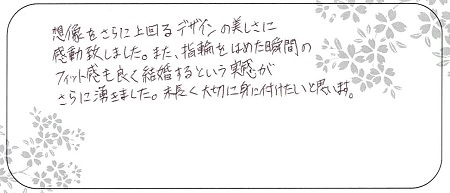 想像をさらに上回るデザインの美しさに
感動致しました。また、指輪をはめた瞬間の
フィット感も良く結婚するという実感が
さらに湧きました。末長く大切に身に付けたいと思います。